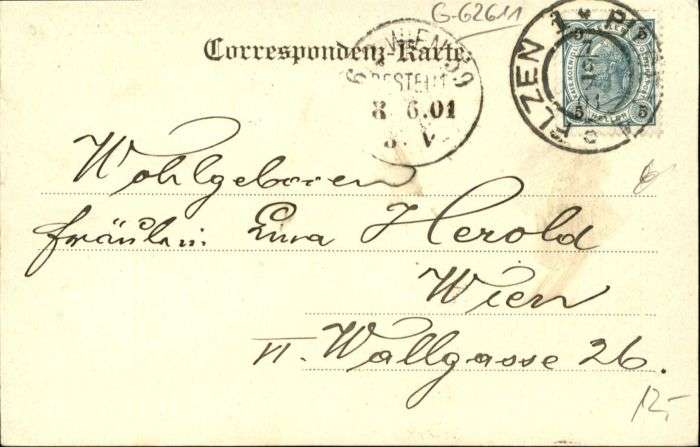 G-62611
Correspondenz-Karte
6/1 WIEN 59
BESTELLT
8.6.01
8. V
PILZEN 1
5 5
HELLER
Wohlgeboren
Fräulein Emma Herold
Wien
VI. Wallgasse 26.
12,-